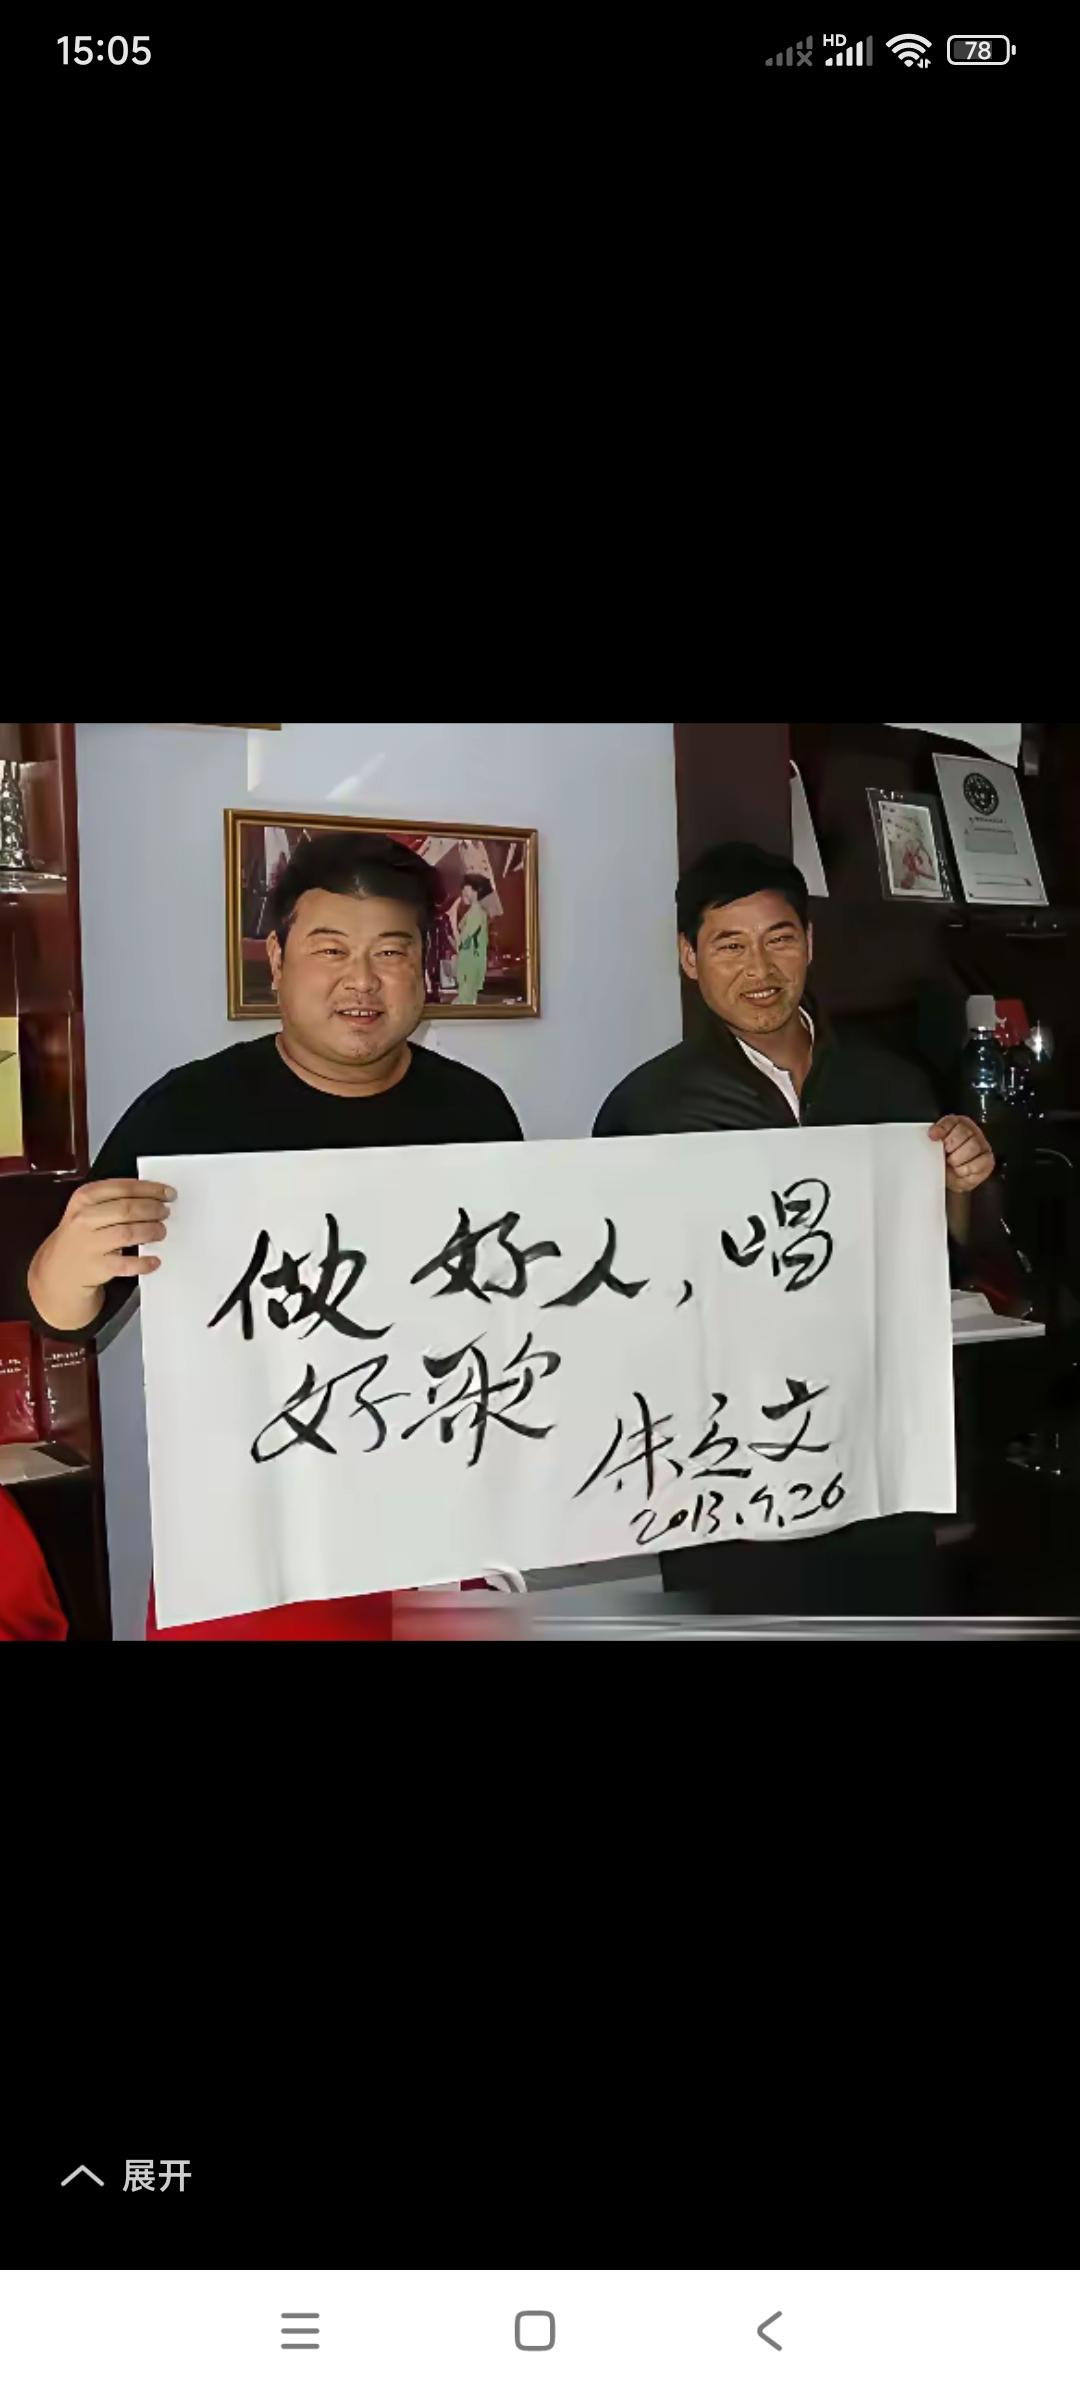 15:05
HD
78
做好人，唱
好歌
朱之文
2013.9.26
展开